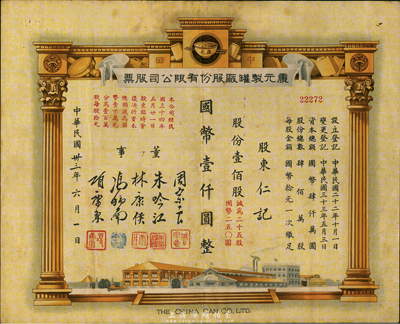 中國
康元製罐廠股份有限公司股票
22272
設立登記 中華民國二十二年十一月一日
變更登記 中華民國三十三年五月三日
資本總額 國幣肆仟萬圓
股份總數 肆佰萬股
每股金額 國幣拾元一次繳足
股東仁記
股份壹佰股
減為二十五股
國幣二五〇圓
國幣壹仟圓整
董事
朱吟江
林康侯
項康原
本公司經民
國三十四年
五月廿一日
股東臨時會
中華民國卅三年六月一日
THE CHINA CAN CO., LTD.